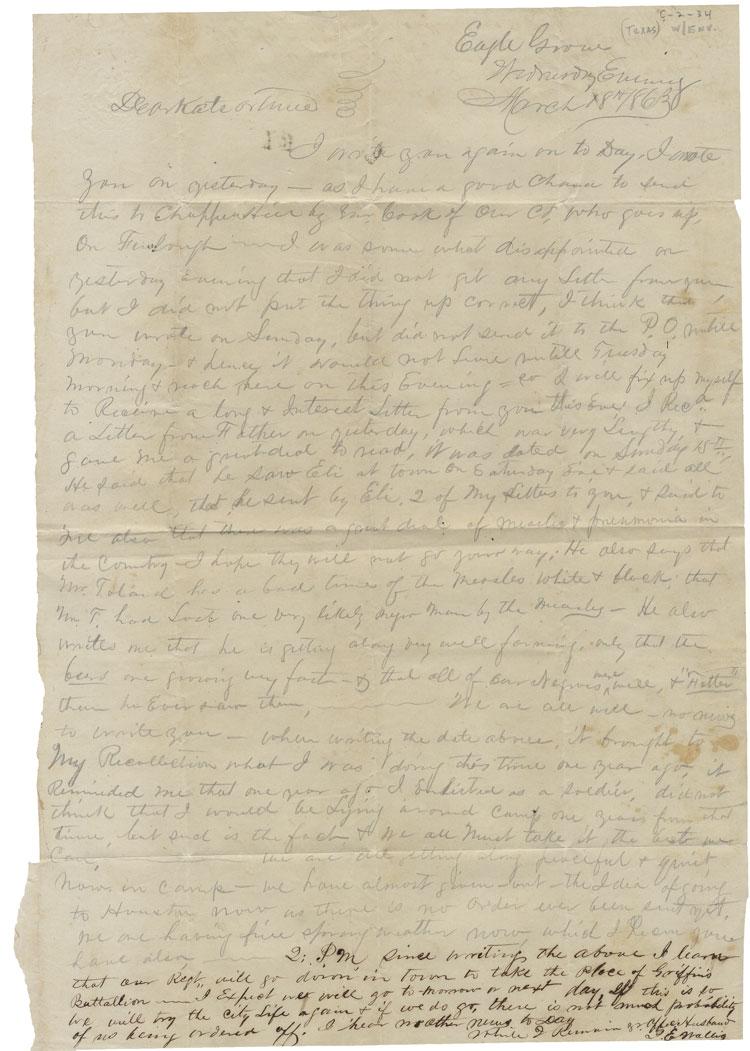 C-2-34
(Texas) W/Env.
Eagle Grove
Wednesday Evening
March 18th 1863
Dear Kate or Tunie
I write you again on to Day. I wrote
you on yesterday — as I have a good Chance to send
this to Chappell Hill by Cook of Our Co. who goes up,
On Furlough — I was some what disappointed on
yesterday Evening that I did not get any Letter from you
but I did not put the thing up correct, I think that
you wrote on Sunday, but did not send it to the P.O. untill
Monday — & hence it would not Live untill Tuesday
morning & reach here on this Evening = so I will fix up myself
to Receive a long & Interest Letter from you this Eve. I Recd
a Letter from Father on yesterday, which was very Lengthy &
gave me a great deal to read, it was dated on Sunday 15th,
He said that he saw Eli at town on Saturday & said all
was well, that he sent by Eli, 2 of My Letters to you, & said to
me also that there was a great deal of measles & pneumonia in
the Country — I hope they will not go your way; He also says that
Mr. Toland has a bad time of the Measles White & black; that
Mr. T. had Lost one very likely negro Man by the Measles — He also
writes me that he is getting along very well farming, only that the
are growing very fast — & that all of our Negroes were well, & "Fatter"
than he Ever saw them, — We are all well — no news
to write you — when writing the date above, it brought to
My Recollection what I was doing this time one year ago. it
Reminded me that one year ago I Enlisted as a soldier, did not
think that I would be Lying around Camp one year from that
time, but such is the fact & We all Must take it the best we
Can, We are all getting along peaceful & quiet
Now in Camp — we have almost given — out — the Idea of going
to Houston now as there is no order ever been sent yet.
We are having fine spring weather now which I Recon you
have also —
2; P.M since writing the above I learn
that our Regt. will go down in town to take the place of Griffin's
Battallion — I Expect we will go to-morrow or next day, If this is so
we will try the City Life again & if we do go, there is not much probability
of us being ordered off. I hear no other news to Day
While I Remain yr. Husband
E Wallis